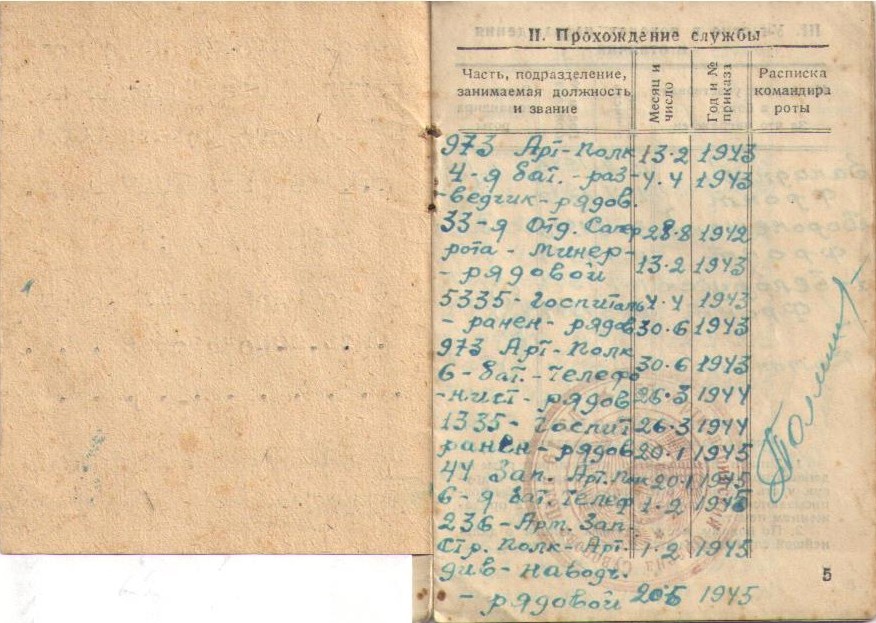 II. Прохождение службы
Часть, подразделение, занимаемая должность и звание
Месяц и число
Год и № приказа
Расписка командира роты
973 Арт-Полк 13·2 1943
4-я бат.-раз- 4·4 1943
-ведчик-рядов.
33-я Отд. Сапер 28·8 1942
рота - минер- 13·2 1943
- рядовой
5335-Госпиталь 4·4 1943
- ранен-рядов 30·6 1943
973 Арт-Полк 30·6 1943
6-бат.-Телефо
-нист-рядов 26·3 1944
1335-Госпит 26·3 1944
ранен-рядов 20·1 1945
44 Зап. Арт. Полк 20·1 1945
6-я бат. Телеф 1·2 1945
236-Арт. Зап.
Стр. Полк-Арт. 1·2 1945
див-наводч.
- рядовой 20·5 1945
5